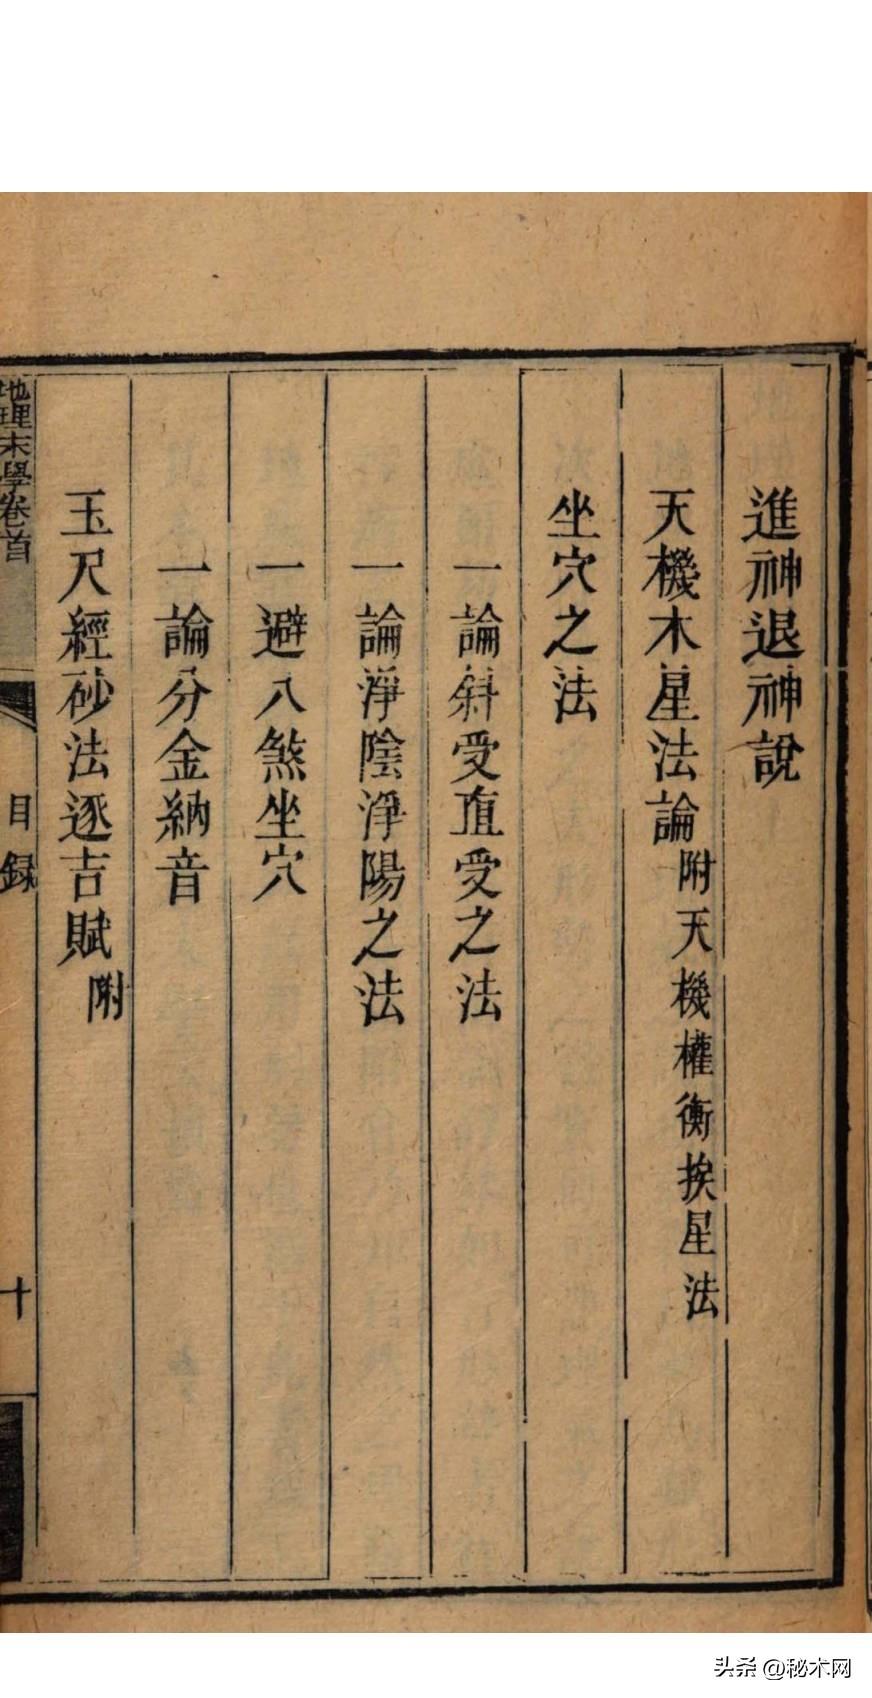 進神退神說
天機木星法論附天機權衡挨星法
坐穴之法
一論斜受直受之法
一論淨陰淨陽之法
一避八煞坐穴
一論分金納音
玉尺經砂法逐吉賦附
地理末學卷首
目録
十
头条 @秘术网